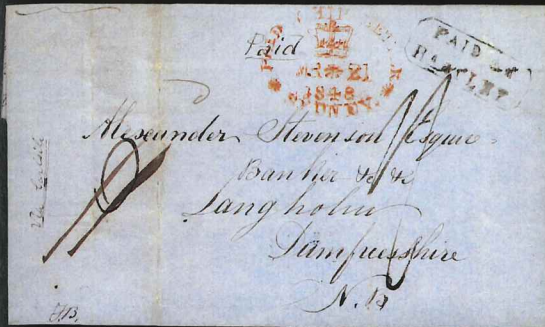 Paid
PAID SHIP LETTER
MR 21
1848
SYDNEY
PAID AT
Alexander Stevenson Esquire
Banker &c &c
Langholm
Dumfriesshire
N.B.